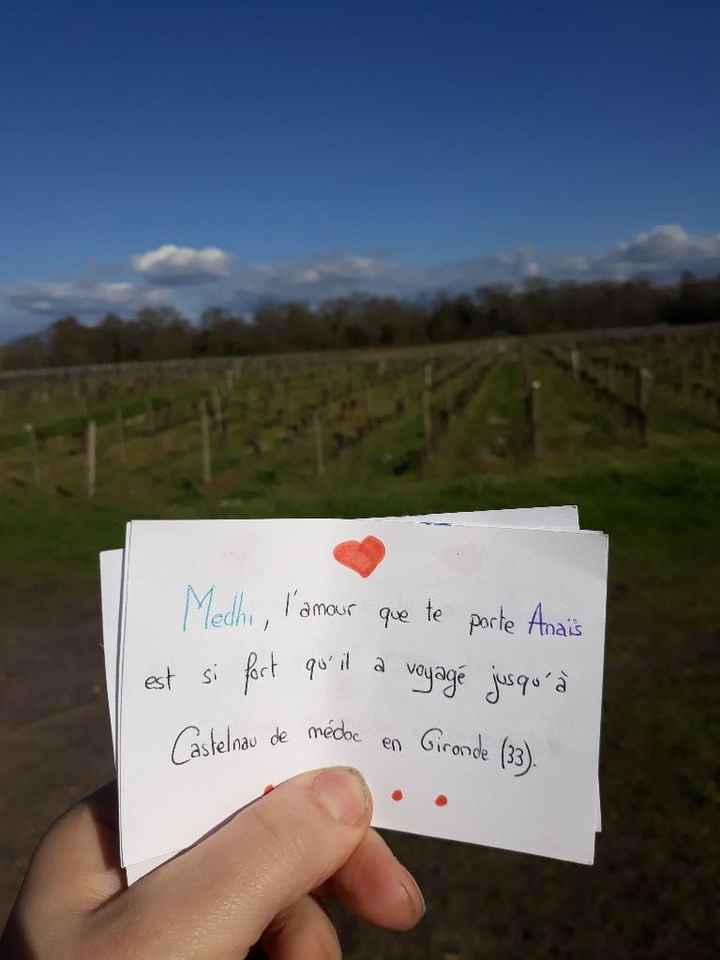 Medhi, l'amour que te porte Anaïs
est si fort qu'il a voyagé jusqu'à
Castelnau de médoc en Gironde (33).